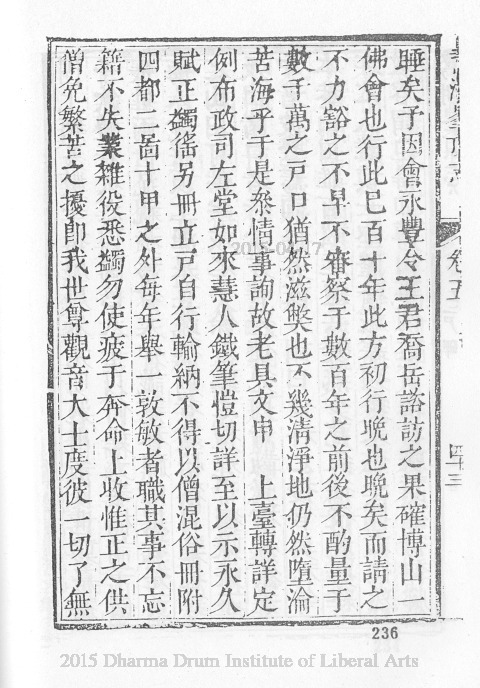 睡矣予因會永豐令王君喬岳諮訪之果確博山一
佛會也行此巳百十年此方初行晩也晩矣而請之
不力豁之不早不審察于數百年之前後不酌量于
數千萬之戸口猶然滋獘也不幾清淨地仍然墮淪
苦海乎于是叅情事詢故老具文申　上臺轉詳定
例布政司左堂如來慧人鐵筆愷切詳至以示永久
賦正蠲徭另冊立戸自行輸納不得以僧混俗冊附
四都二啚十甲之外每年舉一敦敏者職其事不忘
籍不失業雜役悉蠲勿使疲于奔命上收惟正之供
僧免繁苦之擾卽我世尊觀音大士度彼一切了無
卷五
四十三
236
2015 Dharma Drum Institute of Liberal Arts